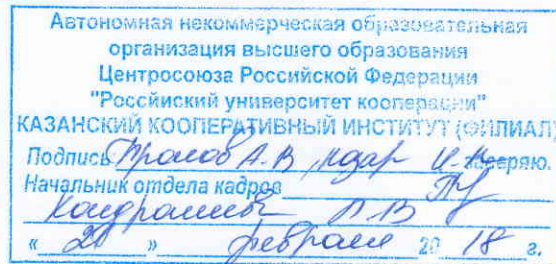 Автономная некоммерческая образовательная
организация высшего образования
Центросоюза Российской Федерации
"Российский университет кооперации"
КАЗАНСКИЙ КООПЕРАТИВНЫЙ ИНСТИТУТ (ФИЛИАЛ)
Подпись А.В заверяю.
Начальник отдела кадров
« 20 » февраля 20 18 г.